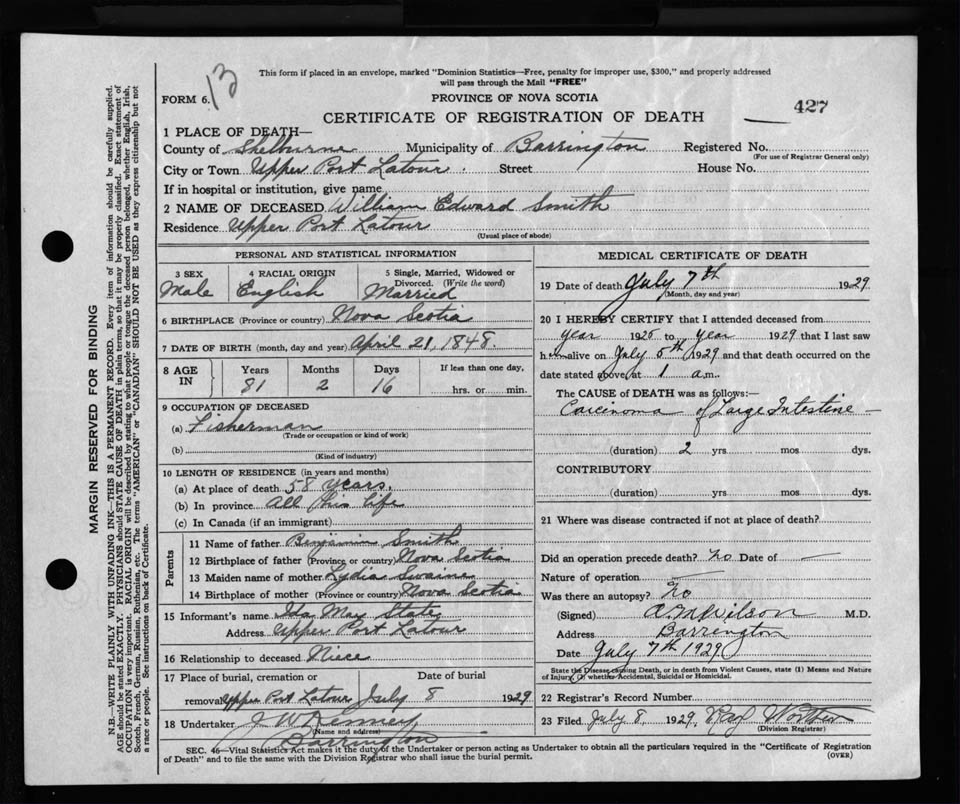 This form if placed in an envelope, marked "Dominion Statistics—Free, penalty for improper use, $300," and properly addressed
will pass through the Mail "FREE"
13
FORM 6.
PROVINCE OF NOVA SCOTIA
CERTIFICATE OF REGISTRATION OF DEATH
427
1 PLACE OF DEATH—
County of Shelburne Municipality of Barrington Registered No.
(For use of Registrar General only)
City or Town Upper Port Latour. Street House No.
If in hospital or institution, give name
2 NAME OF DECEASED William Edward Smith
Residence Upper Port Latour
(Usual place of abode)
PERSONAL AND STATISTICAL INFORMATION
3 SEX
Male
4 RACIAL ORIGIN
English
5 Single, Married, Widowed or
Divorced. (Write the word)
Married
6 BIRTHPLACE (Province or country) Nova Scotia
7 DATE OF BIRTH (month, day and year) April 21, 1848.
8 AGE IN
Years Months Days If less than one day,
81 2 16 hrs. or min.
9 OCCUPATION OF DECEASED
(a) Fisherman
(Trade or occupation or kind of work)
(b)
(Kind of industry)
10 LENGTH OF RESIDENCE (in years and months)
(a) At place of death 58 years.
(b) In province All his life
(c) In Canada (if an immigrant)
Parents
11 Name of father Benjamin Smith
12 Birthplace of father (Province or country) Nova Scotia
13 Maiden name of mother Lydia Swaine
14 Birthplace of mother (Province or country) Nova Scotia
15 Informant's name Ida May State
Address Upper Port Latour
16 Relationship to deceased Niece
17 Place of burial, cremation or Date of burial
removal Upper Port Latour July 8 1929
18 Undertaker J W Kenney
(Name and address)
Barrington
MEDICAL CERTIFICATE OF DEATH
19 Date of death July 7th 1929
(Month, day and year)
20 I HEREBY CERTIFY that I attended deceased from
year 1925 to year 1929 that I last saw
him alive on July 5th 1929 and that death occurred on the
date stated above, at 1 a.m.
The CAUSE OF DEATH was as follows:—
Carcinoma of Large Intestine —
(duration) 2 yrs mos dys.
CONTRIBUTORY
(duration) yrs. mos dys.
21 Where was disease contracted if not at place of death?
Did an operation precede death? No Date of —
Nature of operation —
Was there an autopsy? No
(Signed) Wilson M.D.
Address Barrington
Date July 7th 1929
State the Disease causing Death, or in death from Violent Causes, state (1) Means and Nature
of Injury, (2) whether Accidental, Suicidal or Homicidal.
22 Registrar's Record Number
23 Filed July 8, 1929,
(Division Registrar)
SEC. 46—Vital Statistics Act makes it the duty of the Undertaker or person acting as Undertaker to obtain all the particulars required in the "Certificate of Registration
of Death" and to file the same with the Division Registrar who shall issue the burial permit.
(OVER)
MARGIN RESERVED FOR BINDING
N.B.—WRITE PLAINLY, WITH UNFADING INK—THIS IS A PERMANENT RECORD. Every item of information should be carefully supplied.
AGE should be stated EXACTLY. PHYSICIANS should STATE CAUSE OF DEATH in plain terms, so that it may be properly classified. Exact statement of
OCCUPATION is very important. RACIAL ORIGIN will be described by stating to what people or tongue the deceased person belonged, whether English, Irish,
Scotch, French, German, Russian, Ruthenian, etc. The terms "AMERICAN" or "CANADIAN" SHOULD NOT BE USED as they express citizenship but not
a race or people. See instructions on back of Certificate.